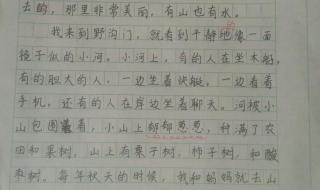 去的，那里非常美丽，有山也有水。
我来到野沟门，就看到干静地像一面
的
镜子似的小河。小河上，有的人在坐木船，
有的胆大的人，一边坐着快艇，一边看着
手机，还有的人在岸边坐着聊天。河被小
山包围着，小山上郁郁葱葱，种满了农
田和果树，山上有栗子树，柿子树，和酸
枣树。每年秋天的时候，我和妈妈就去山